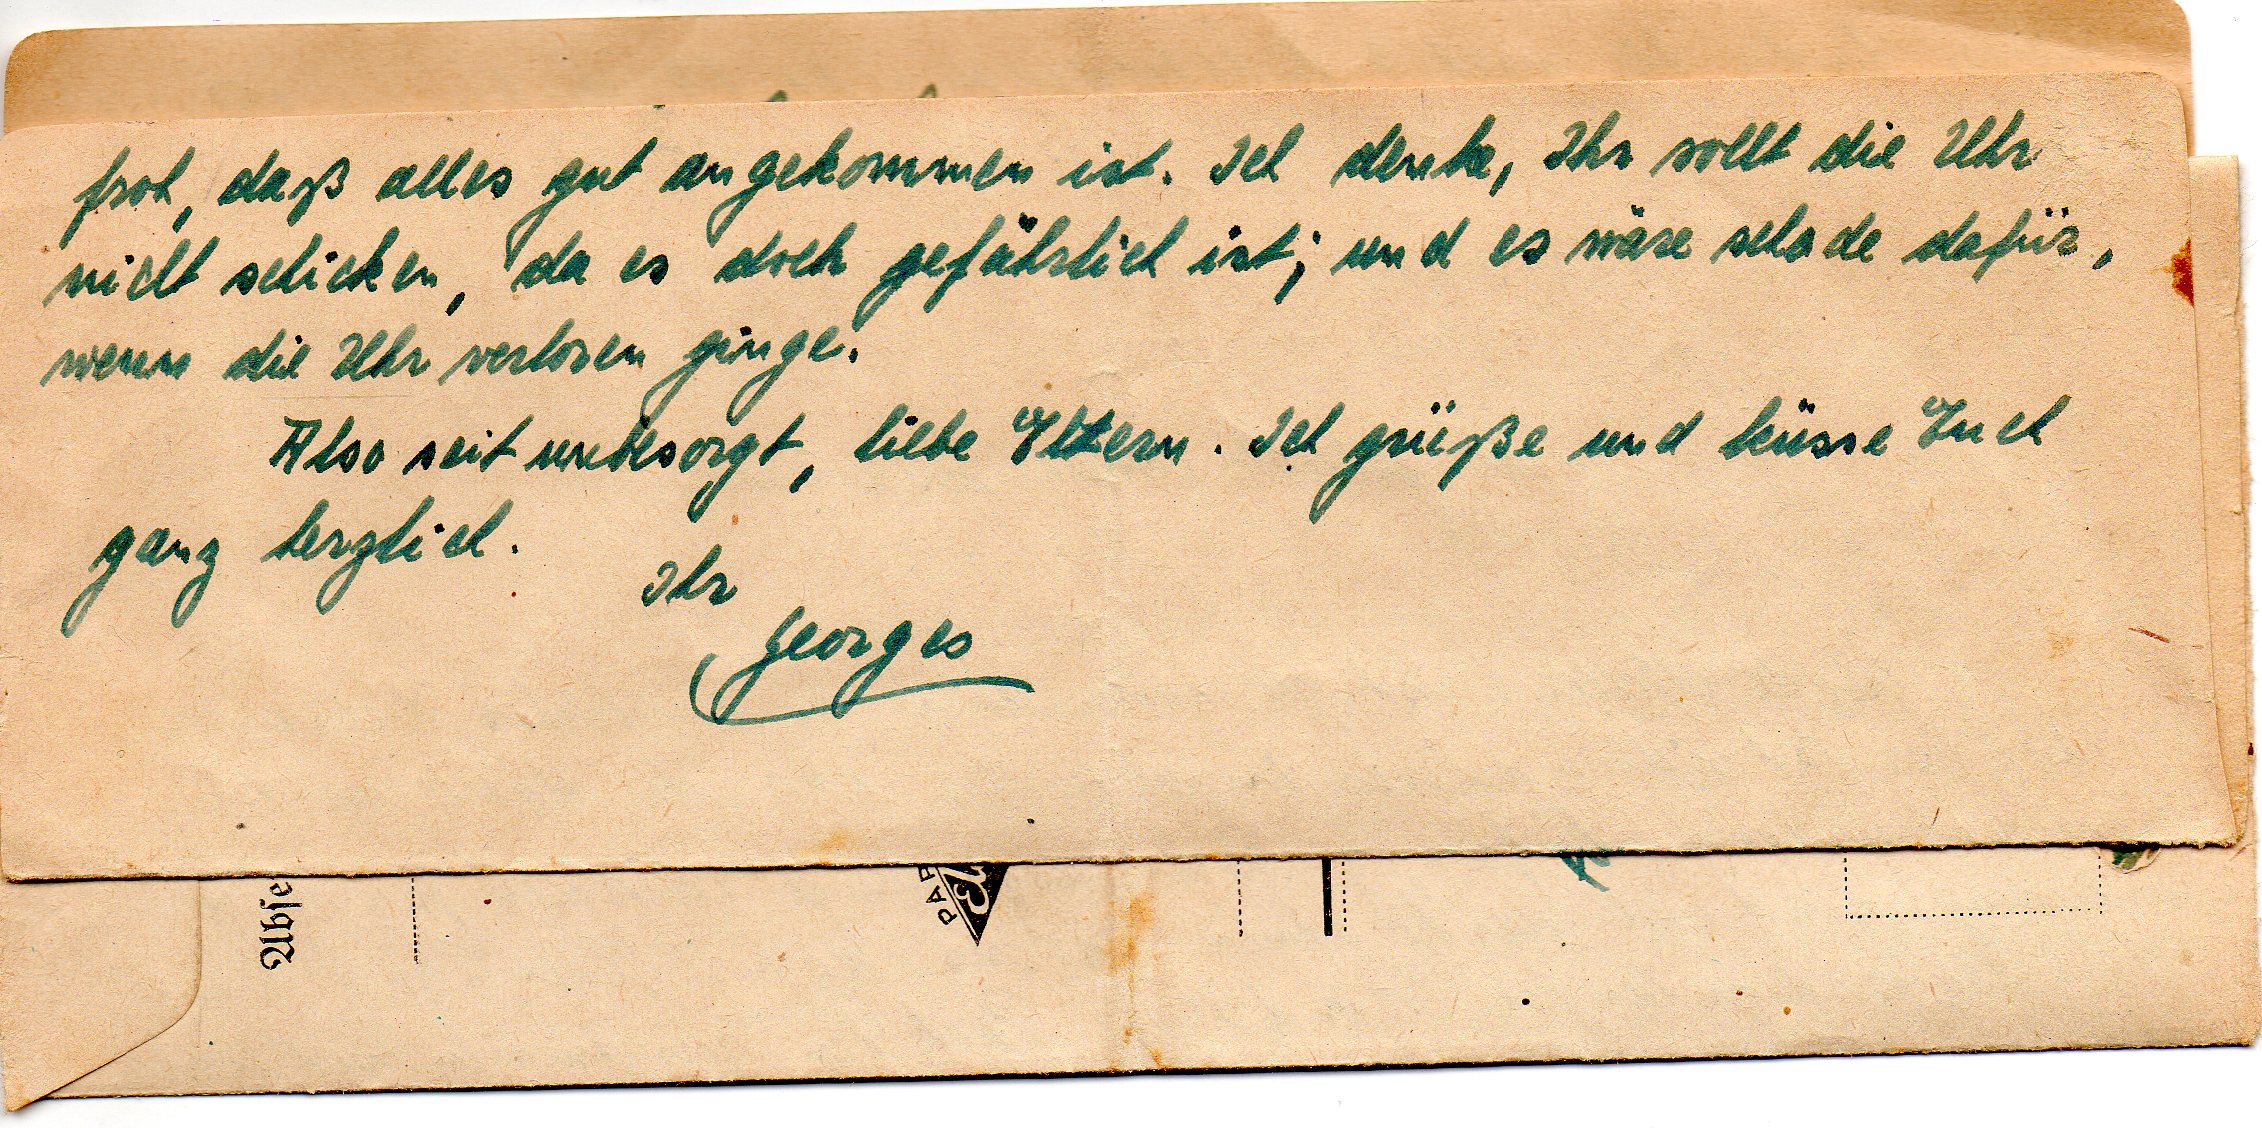 froh, daß alles gut angekommen ist. Ich denke, Ihr sollt die Uhr
nicht schicken, da es doch gefährlich ist; und es wäre schade dafür,
wenn die Uhr verloren ginge.
Also seit unbesorgt, liebe Eltern. Ich grüße und küsse Euch
ganz herzlich.
Ihr
Georges
Abse
PAP